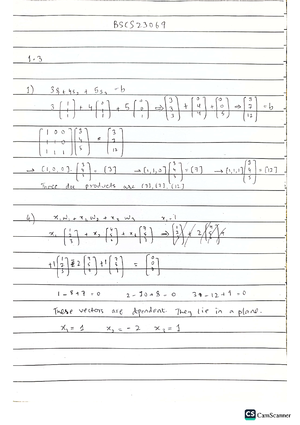 BSCS23069
1.3
1) 3s₁ + 4s₂ + 5s₃ = b
3 [1 1 1] + 4 [0 1 1] + 5 [0 0 1] ⇒ [3 3 3] + [0 4 4] + [0 0 5] ⇒ [3 7 12] = b
[1 0 0 1 1 0 1 1 1] [3 4 5] = [3 7 12]
→ [1,0,0] · [3 4 5] = [3] → [1,1,0] [3 4 5] = [7] → [1,1,1] [3 4 5] = [12]
dot products are [3], [7], [12]
4) x₁w₁ + x₂w₂ + x₃w₃ x₁=1
x₁ [1 2 3] + x₂ [4 5 6] + x₃ [7 8 9] ⇒
+1 [1 2 3] 2 [4 5 6] +1 [7 8 9] = [0 0 0]
1-8+7=0 2-10+8=0 3-12+9=0
These vectors are dependent. They lie in a plane.
x₁ = 1 x₂ = -2 x₃ = 1
CS CamScanner